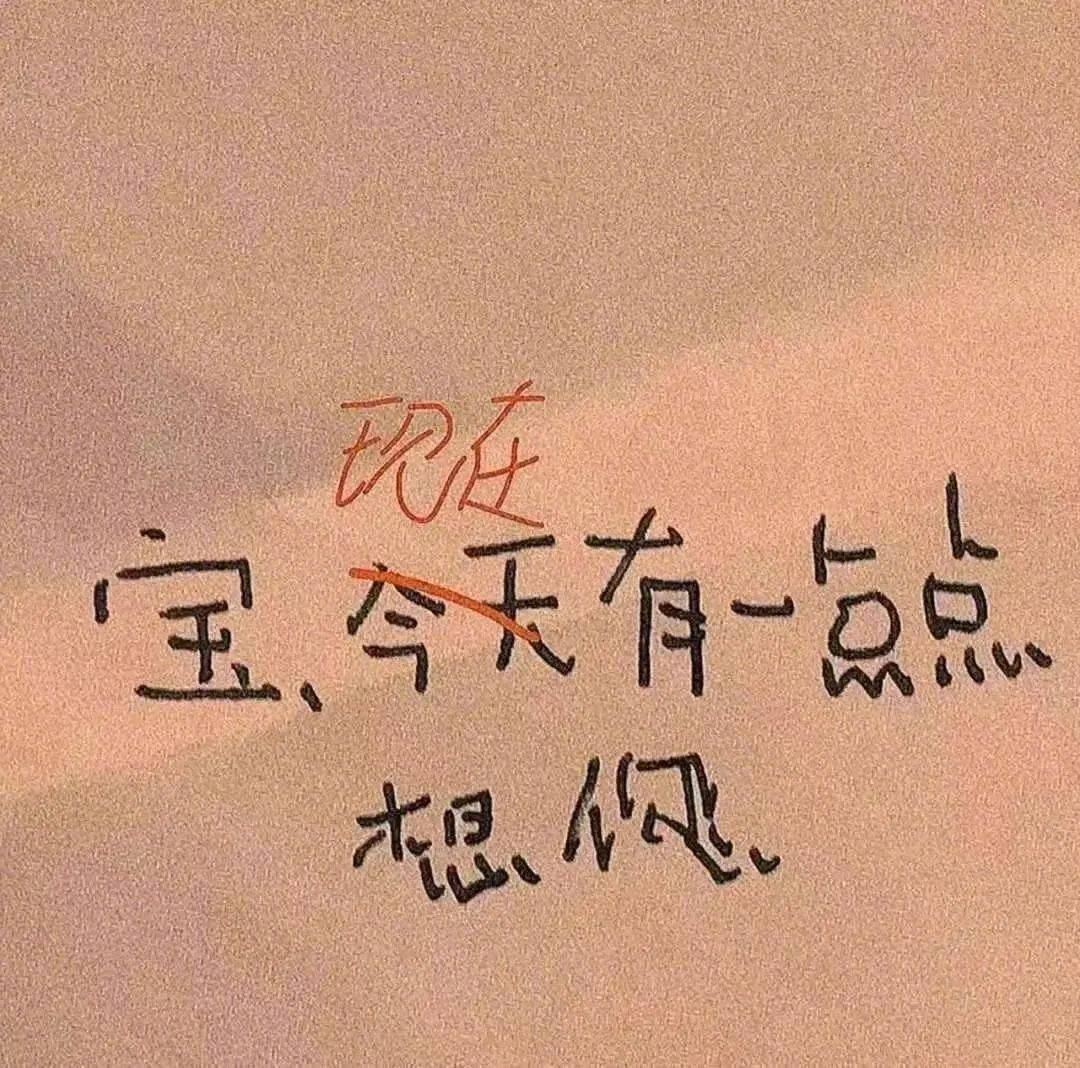 现在
宝、今天有一点点
想你、